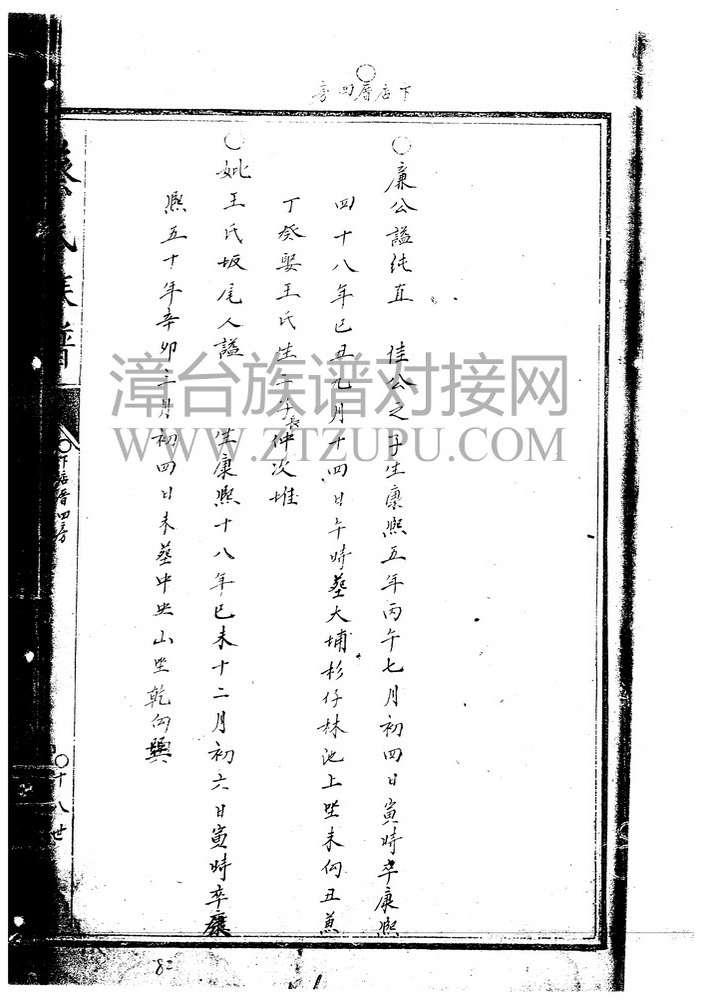 下店厝四房
〇廉公諡純直　佳公之子生康熙五年丙午七月初四日寅時卒康熙
四十八年己丑元月十四日午時塟大埔杉仔林池上坐未向丑兼
丁癸娶王氏生二子長仲次堆
〇妣王氏坂尾人諡　生康熙十八年己未十二月初六日寅時卒康
熙五十年辛卯三月初四日未塟中央山坐乾向巽
氏族譜
〇下店厝四房
〇十八世
漳台族谱对接网
WWW.ZTZUPU.COM